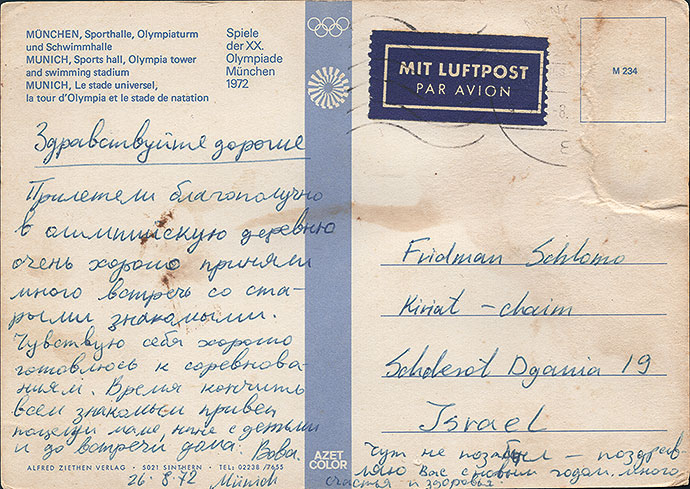 MÜNCHEN, Sporthalle, Olympiaturm
und Schwimmhalle
MUNICH, Sports hall, Olympia tower
and swimming stadium
MUNICH, Le stade universel,
la tour d'Olympia et le stade de natation
Spiele
der XX.
Olympiade
München
1972
MIT LUFTPOST
PAR AVION
M 234
Здравствуйте дорогие
Прилетели благополучно
в олимпискую деревню
очень хорошо приняли
много встречь со ста-
рыми знакомыми.
Чувствую себя хорошо
готовлюсь к соревнова-
ниям. Время кончить
всем знакомым привет
поцелуй маме, няне с детьми
и до встречи дома. Вова.
26.8.72 Münich
Fridman Schlomo
Kiriat - chaim
Schderot Dgania 19
Israel
Чут не позабыл - поздрав-
ляю Вас с новым годом. много
счастья и здоровья.
AZET
COLOR
ALFRED ZIETHEN VERLAG · 5021 SINTHERN · TEL: 02238 / 7655